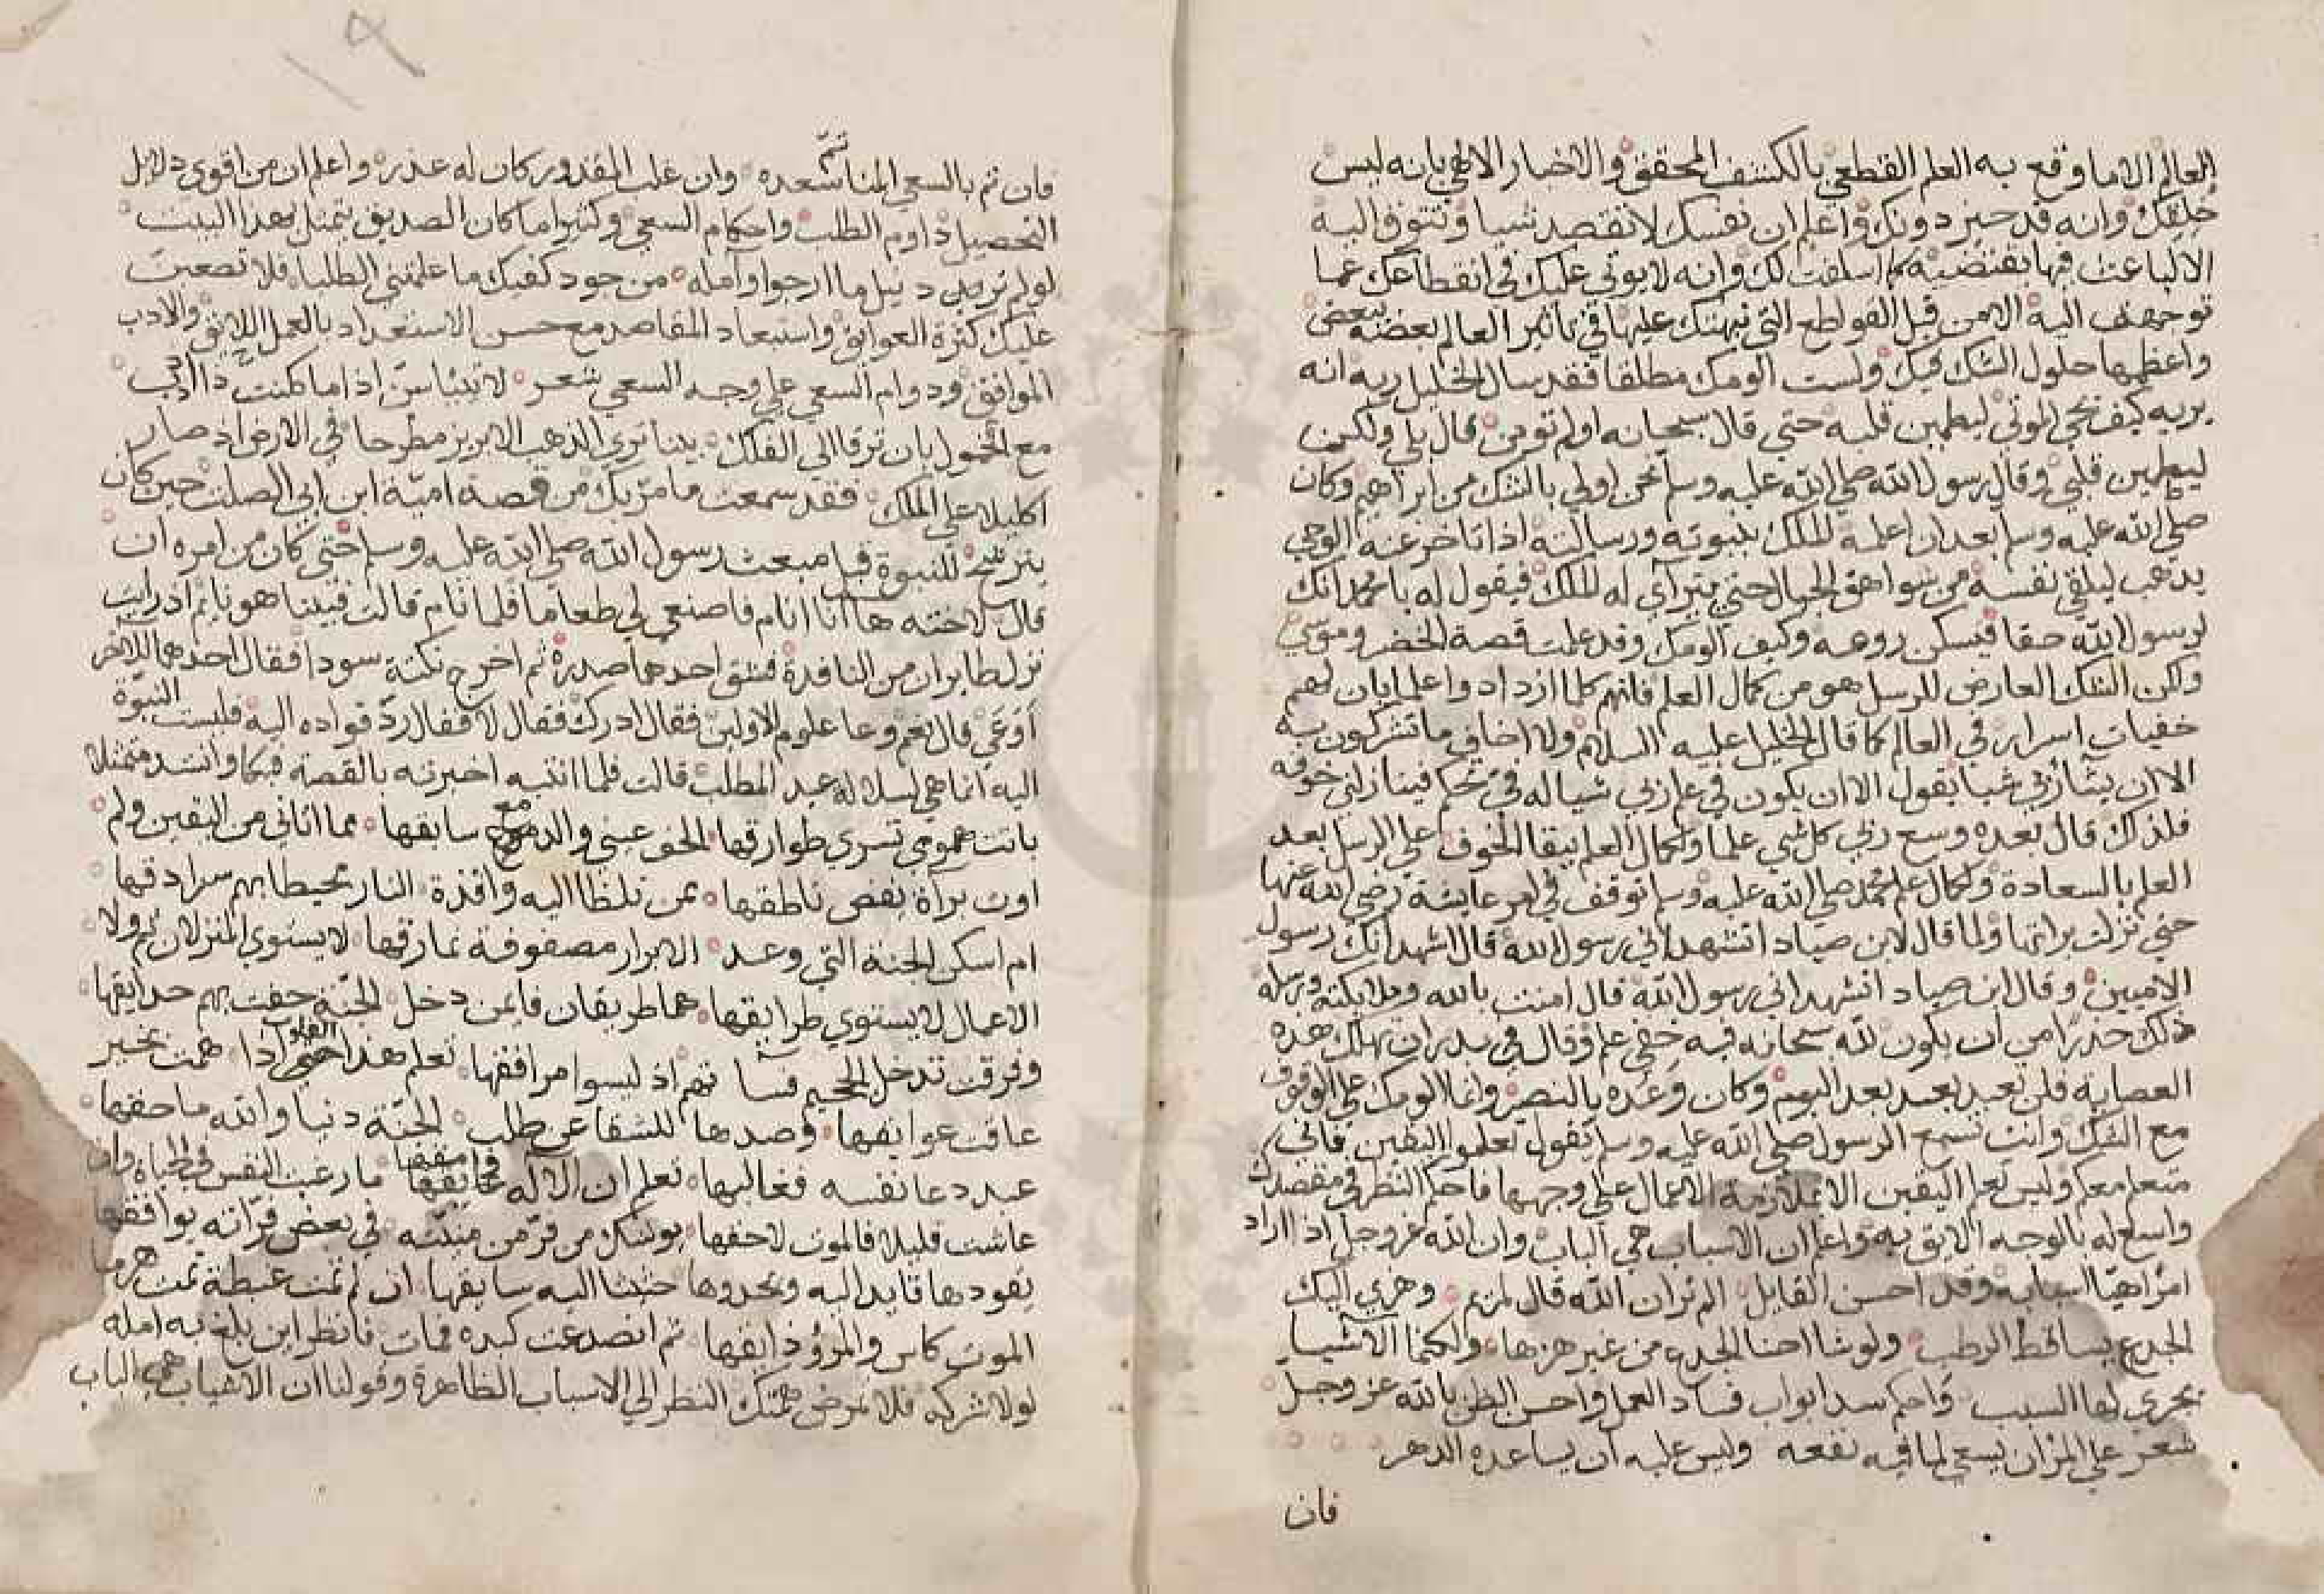 العالم الا ما وقع به العلم القطعي بالكشف المحقق والاخبار الالهي بانه ليس
خلقك وانه قد حيز دونك واعلم ان نفسك لا تقصد شيا وتتوق اليه
الا لباعث فيها يقتضيه كما اسلفت لك وانه لا يوتي عليك في انقطاعك عما
توجهت اليه الا من قبل القواطع التي نبهتك عليها في تاثير العالم بعضه ببعض
واعظمها حلول الشك فيك ولست الومك مطلقا فقد سال الخليل ربه انه
يريه كيف يحي الموتي ليطمين قلبه حتي قال سبحانه اولم تومن قال بلي ولكن
ليطمين قلبي وقال رسول الله صلي الله عليه وسلم نحن اولي بالشك من ابراهيم وكان
صلي الله عليه وسلم بعد ان اعلمه الملك بنبوته ورسالته اذا تاخر عنه الوحي
يذهب ليلقي نفسه من شواهق الجبال حتي يترآي له الملك فيقول له يا محمد انك
لرسول الله حقا فيسكن روعه وكيف الومك وقد علمت قصة الخضر وموسي
ولكن الشك العارض للرسل هو من كمال العلم فانهم كلما ازداد واعلما بان لهم
خفيات اسرار في العالم كما قال الخليل عليه السلام ولا اخاف ما تشركون به
الا ان يشا ربي شيا يقول الا ان يكون في علم ربي شيا له في تحكم فينازلني خوفه
فلذلك قال بعده وسع ربي كل شي علما ولكمال العلم يبقا الخوف علي الرسل بعد
العلم بالسعادة ولكمال علم محمد صلي الله عليه وسلم توقف في امر عايشة رضي الله عنها
حتي نزلت براتها ولما قال لابن صياد اتشهد اني رسول الله قال اشهد انك رسول
الاميين وقال ابن صياد اتشهد اني رسول الله قال امنت بالله وملايكته ورسله
ذلك حذرا من ان يكون لله سبحانه فيه خفي علم وقال في بدر ان تهلك هذه
العصابة فلن تعبد بعد اليوم وكان وعده بالنصر وانما الومك علي الوقوف
مع الشك وانت تسمع الرسول صلي الله عليه وسلم يقول تعلموا اليقين فاني
متعلم معكم وليس تعلم اليقين الا ملازمة الاعمال علي وجهها فاحكم النظر في مقصدك
واسع له بالوجه الايق به واعلم ان الاسباب هي الباب وان الله عز وجل اذا اراد
امرا هيا اسبابه وقد احسن القايل الم تر ان الله قال لمريم وهزي اليك
الجدع يساقط الرطب ولو شا احنا الجدع من غير هزها ولكنما الاشيا
تجري لها السبب واحكم سد ابواب فساد العمل واحسن الظن بالله عز وجل
شعر علي المرؤ ان يسعي لما فيه نفعه وليس عليه ان يساعده الدهر
فان
١٩
فان تم بالسعي المنا تم سعده وان غلب المقدور كان له عذر واعلم ان من اقوي دلايل
التحصيل داوم الطلب واحكام السعي وكثيرا ما كان الصديق يتمثل بهذا البيت
لو لم ترد نيل ما ارجوا وآمله من جود كفيك ما علمتني الطلبا فلا تصعبن
عليك كثرة العوايق واستبعاد المقاصد مع حسن الاستعداد بالعمل اللايق والادب
الموافق ودوام السعي علي وجه السعي شعر لا تيئاسن اذا ما كنت ذا ادب
مع الخمول بان ترقا الي الفلك بينا تري الذهب الابريز مطرحا في الارض اذ صار
اكليلا علي الملك فقد سمعت ما مر بك من قصة امية ابن ابي الصلت حين كان
يترشح للنبوة قبل مبعث رسول الله صلي الله عليه وسلم حتي كان من امره ان
قال لاخته ها انا انام فاصنعي لي طعاما فلما نام قالت فبينا هو نايم اذ رايت
نزل طايران من النافدة فشق احدهما صدره ثم اخرج نكتة سودا فقال احدهما للاخر
اَوَعَي قال نعم وعا علوم الاولين فقال ادرك فقال لا فقال ردّ فواده اليه فليست النبوّة
اليه انما هي لسلاله عبد المطلب قالت فلما انتبه اخبرته بالقصة فبكا وانشد متمثلا
باتت همومي تسري طوارقها الخف عيني والدمع سابقها مما اتاني من اليقين ولم
اوت براة يقص ناطقها من تلظا اليه واقدة النار محيطا بهم سرادقها
ام اسكن الجنة التي وعد الابرار مصفوفة نمارقها لا يستوي المنزلان ثم ولا
الاعمال لا يستوي طرايقها هما طريقان فايمن دخل الجنة حفت بهم حدايقها
وفرقت تدخل الجحيم فسا تهم اذ ليسوا مرافقها تعلم هذا القلوب اذا همت بخير
عاقت عوايقها وصدها للشقا عن طلب الجنة دنيا والله ماحقها
عبد دعا نفسه فغالبها تعلم ان الاله وامقها ما رغبت النفس في الحياة وان
عاشت قليلا فالموت لاحقها يوشك من فر من منيته في بعض غراته يوافقها
يقودها قايد اليه ويحدوها حثيثا اليه سابقها ان لم تمت عبطة تمت هرما
الموت كاس والمرؤ ذايقها ثم انصدعت كبده فمات فانظر اين بلغ به امله
لولا شركه فلا تمرض همتك النظر الي الاسباب الظاهرة وقولنا ان الاشياب هي الباب